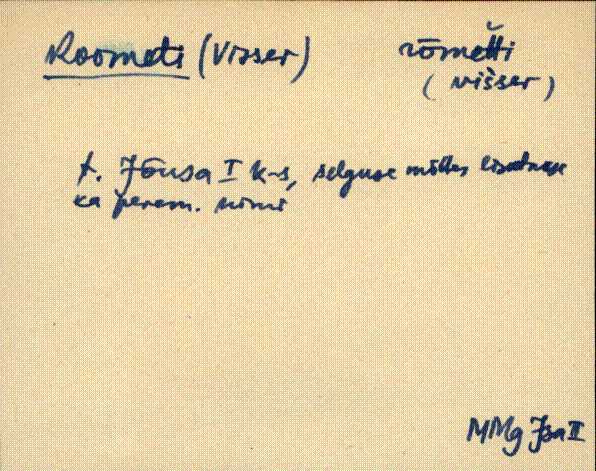 Roometi (Visser) rōmet̆ti
(višser)
t. Jõusa I k-s, selguse mõttes lisatakse
ka perem. nimi
MMg Jsa II